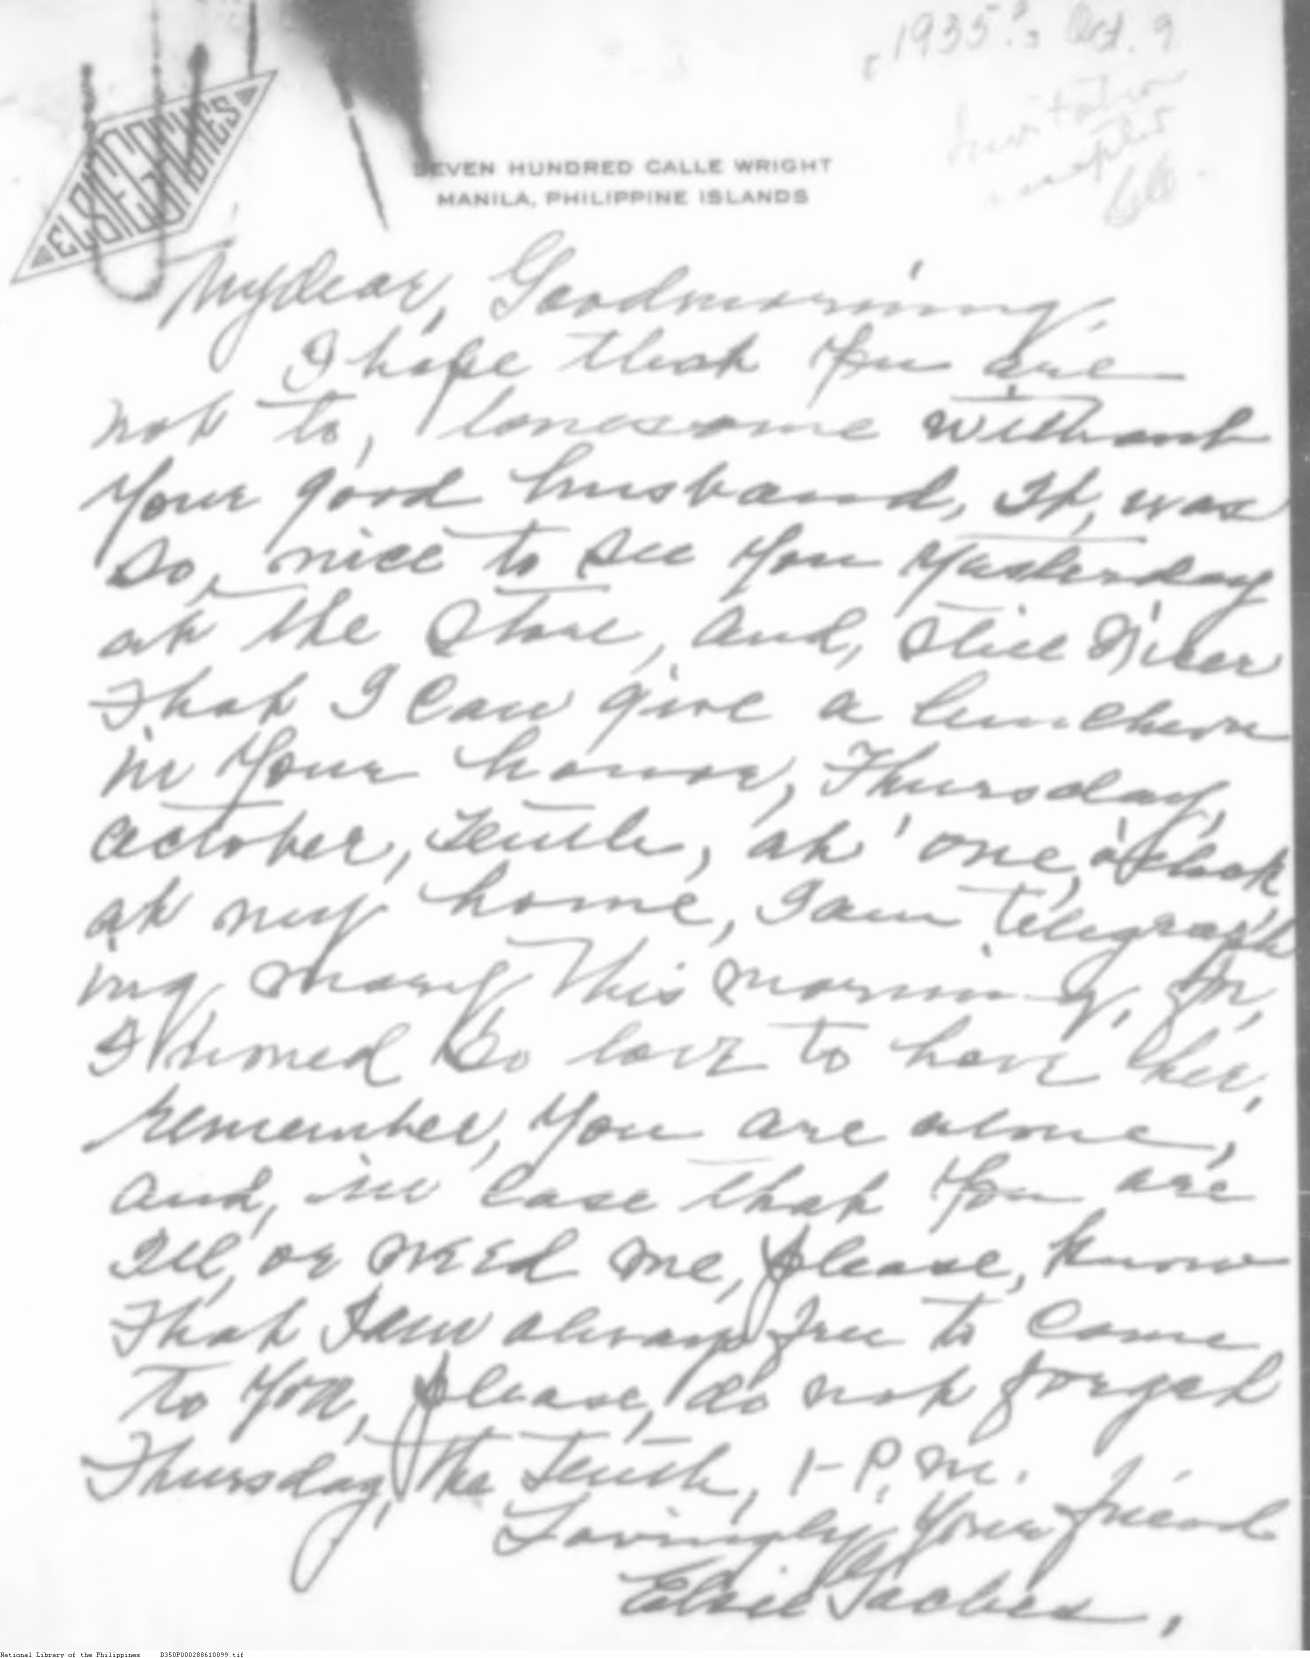 1935? Oct. 9
Invitation
accepted
ELSIE GACHES
SEVEN HUNDRED CALLE WRIGHT
MANILA, PHILIPPINE ISLANDS
My dear, Goodmorning,
I hope that you are
not to, lonesome without
your good husband, It, was
so, nice to see you yesterday
at the store, and, still nicer
that I can give a luncheon
in your honor, Thursday,
October, Tenth, at one, o'clock
at my home, I am telegraph
ing, Mary this morning, for,
I would so love to have her,
remember, you are alone,
and, in case that you are
Ill, or need me, please, know
that I am always free to come
to you, please, do not forget
Thursday, the Tenth, 1- P.M.
Lovingly your friend
Elsie Gaches,
National Library of the Philippines B350P000288610099.tif